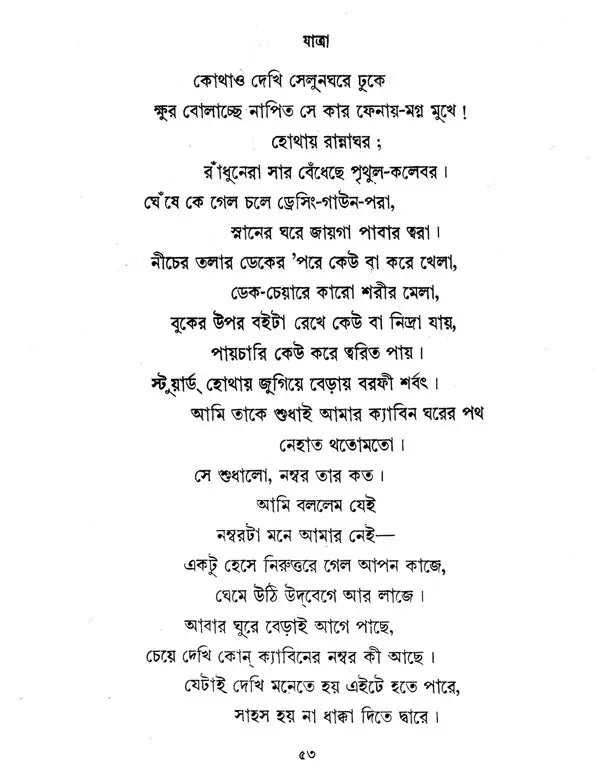 যাত্রা
কোথাও দেখি সেলুনঘরে ঢুকে
ক্ষুর বোলাচ্ছে নাপিত সে কার ফেনায়-মগ্ন মুখে !
হোথায় রান্নাঘর ;
রাঁধুনেরা সার বেঁধেছে পৃথুল-কলেবর ।
ঘেঁষে কে গেল চলে ড্রেসিং-গাউন-পরা,
স্নানের ঘরে জায়গা পাবার ত্বরা ।
নীচের তলার ডেকের 'পরে কেউ বা করে খেলা,
ডেক-চেয়ারে কারো শরীর মেলা,
বুকের উপর বইটা রেখে কেউ বা নিদ্রা যায়,
পায়চারি কেউ করে ত্বরিত পায় ।
স্টুয়ার্ড্ হোথায় জুগিয়ে বেড়ায় বরফী শর্বৎ ।
আমি তাকে শুধাই আমার ক্যাবিন ঘরের পথ
নেহাত থতোমতো ।
সে শুধালো, নম্বর তার কত ।
আমি বললেম যেই
নম্বরটা মনে আমার নেই—
একটু হেসে নিরুত্তরে গেল আপন কাজে,
ঘেমে উঠি উদ্‌বেগে আর লাজে ।
আবার ঘুরে বেড়াই আগে পাছে,
চেয়ে দেখি কোন্ ক্যাবিনের নম্বর কী আছে ।
যেটাই দেখি মনেতে হয় এইটে হতে পারে,
সাহস হয় না ধাক্কা দিতে দ্বারে ।
৫৩